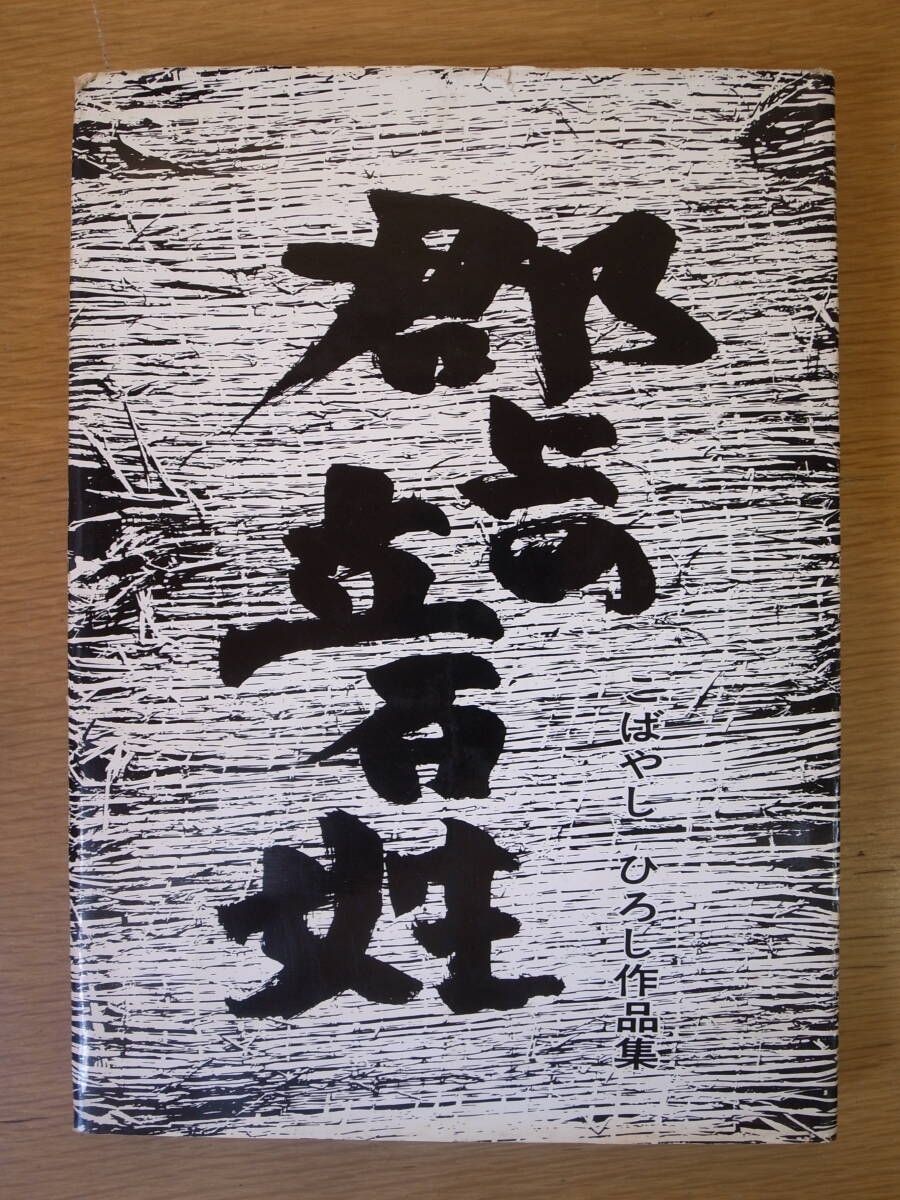 郡上の立百姓
こばやし ひろし作品集